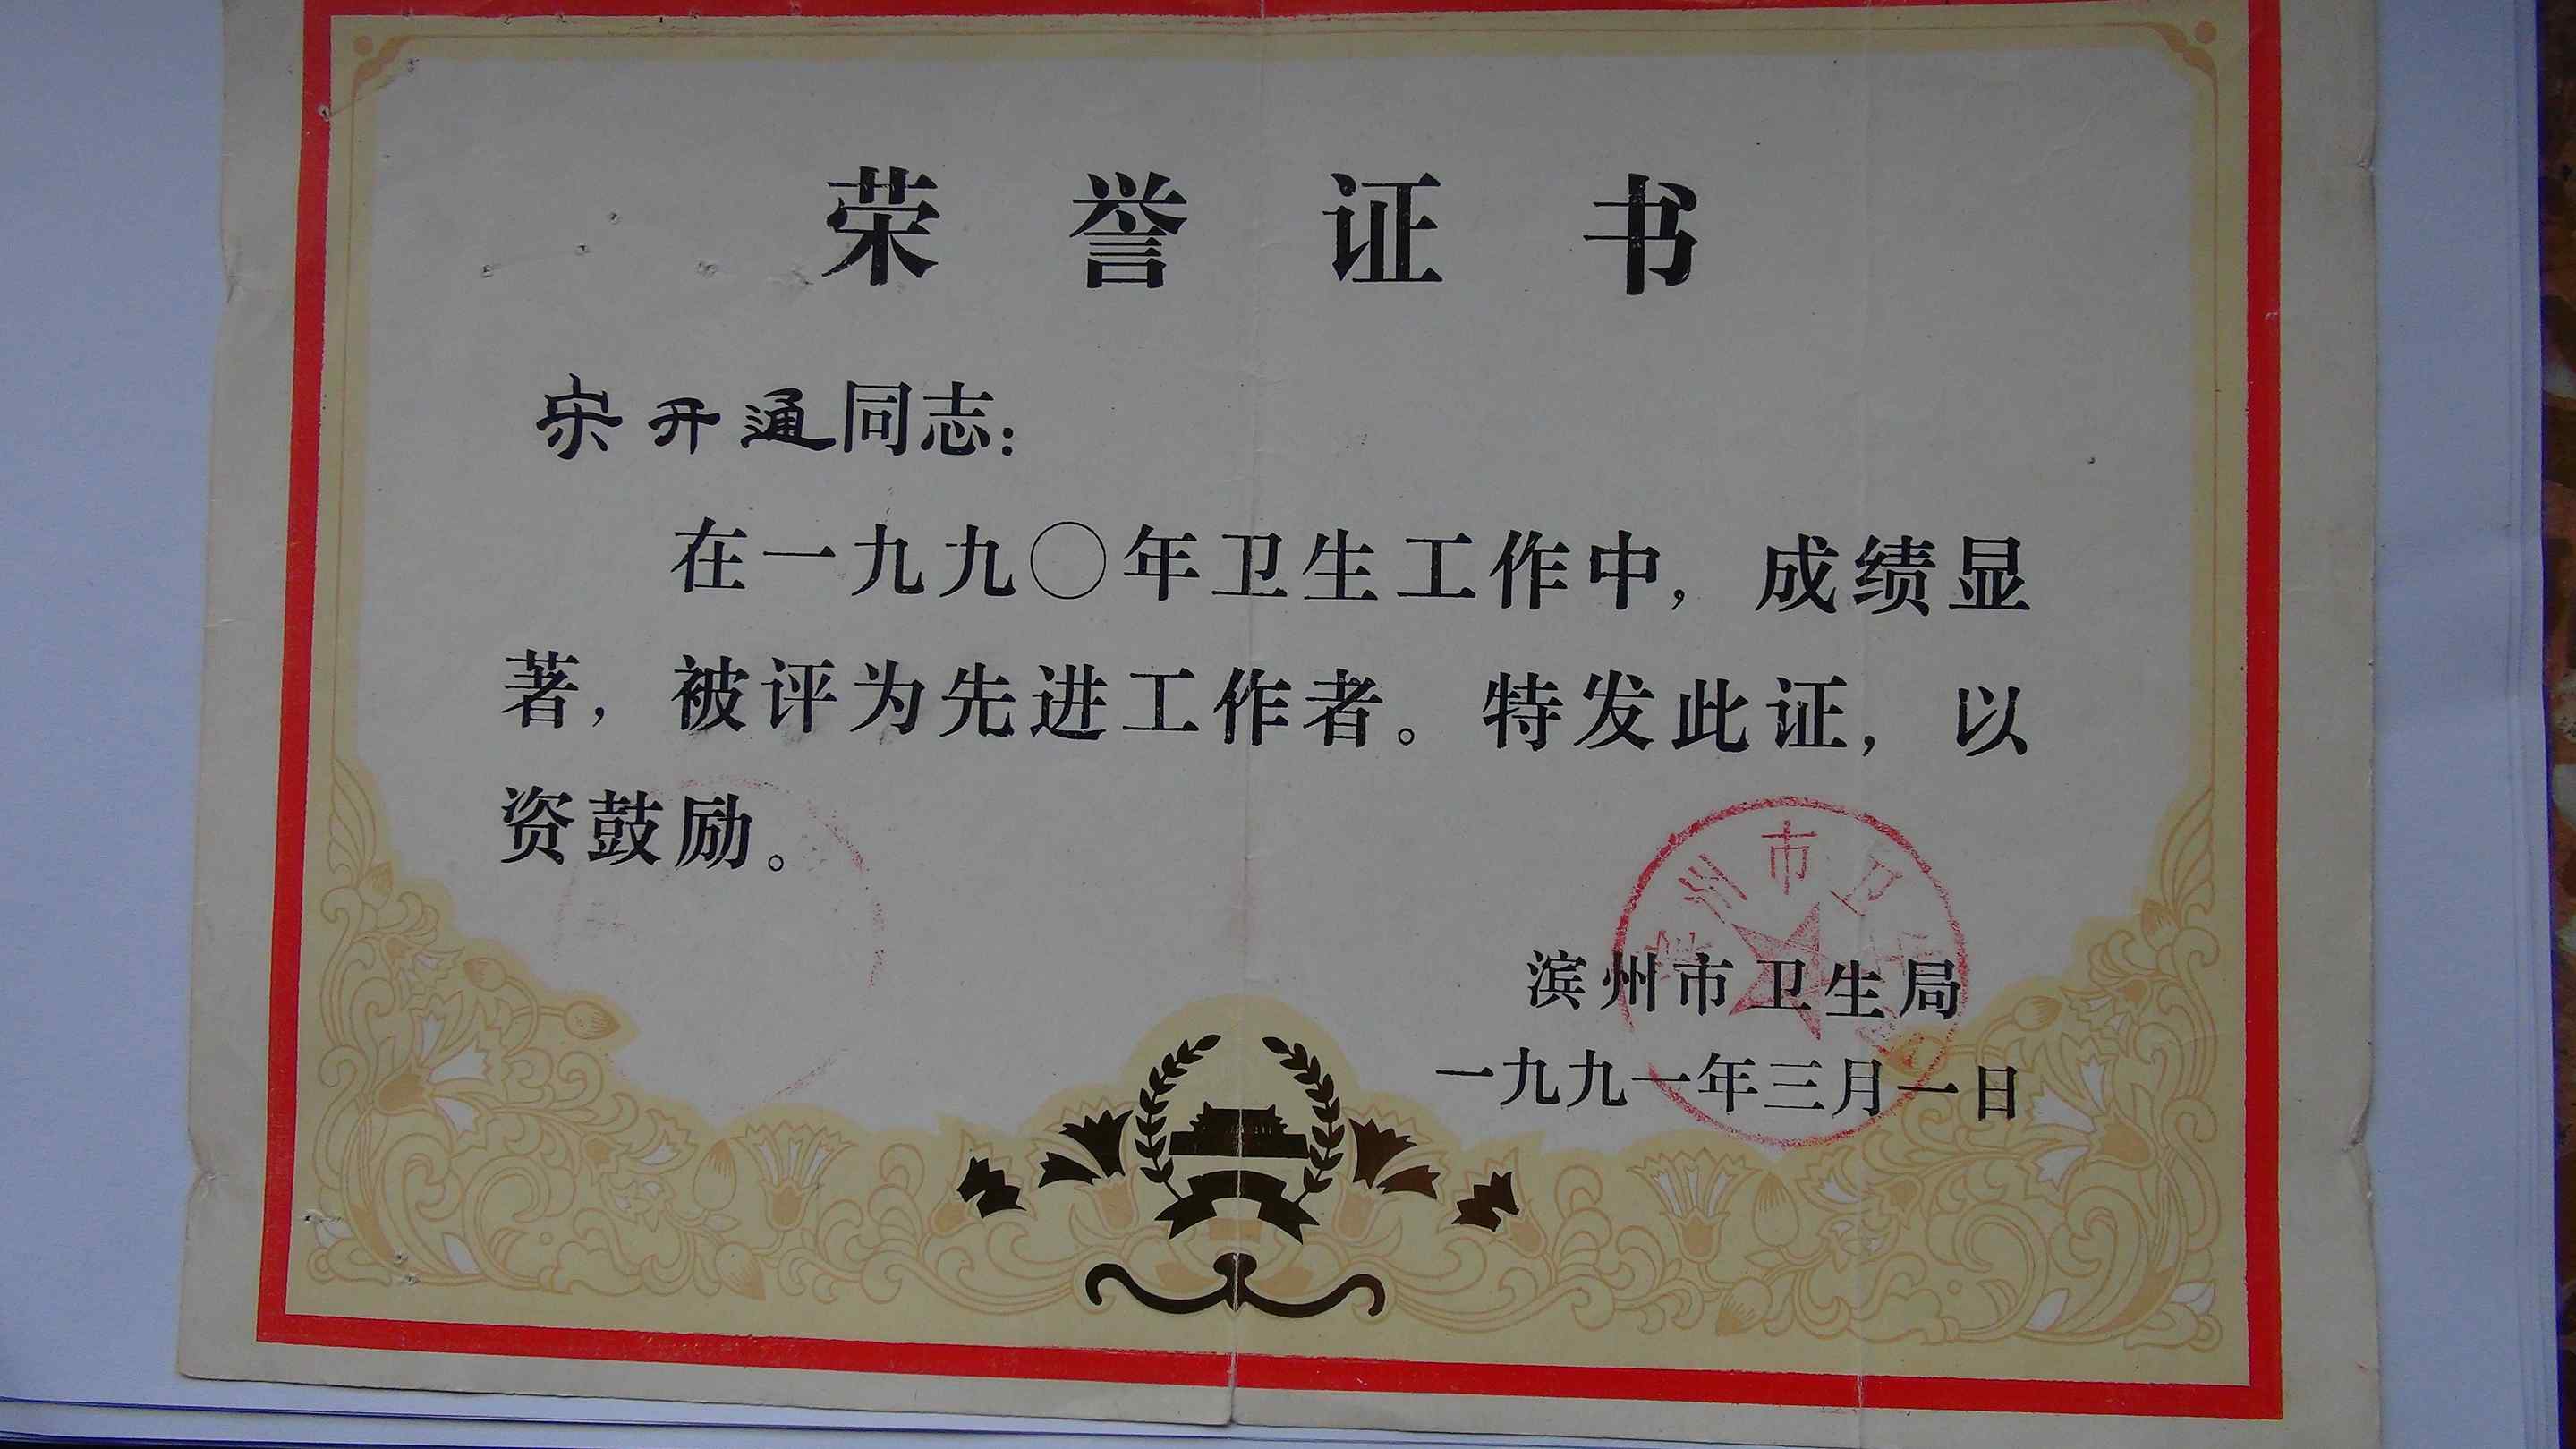 荣誉证书
宋开通同志：
在一九九〇年卫生工作中，成绩显
著，被评为先进工作者。特发此证，以
资鼓励。
州市卫
滨州市卫生局
一九九一年三月一日